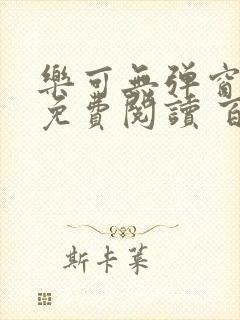 樂可無弹窗
免費閱讀 百
斯卡莱